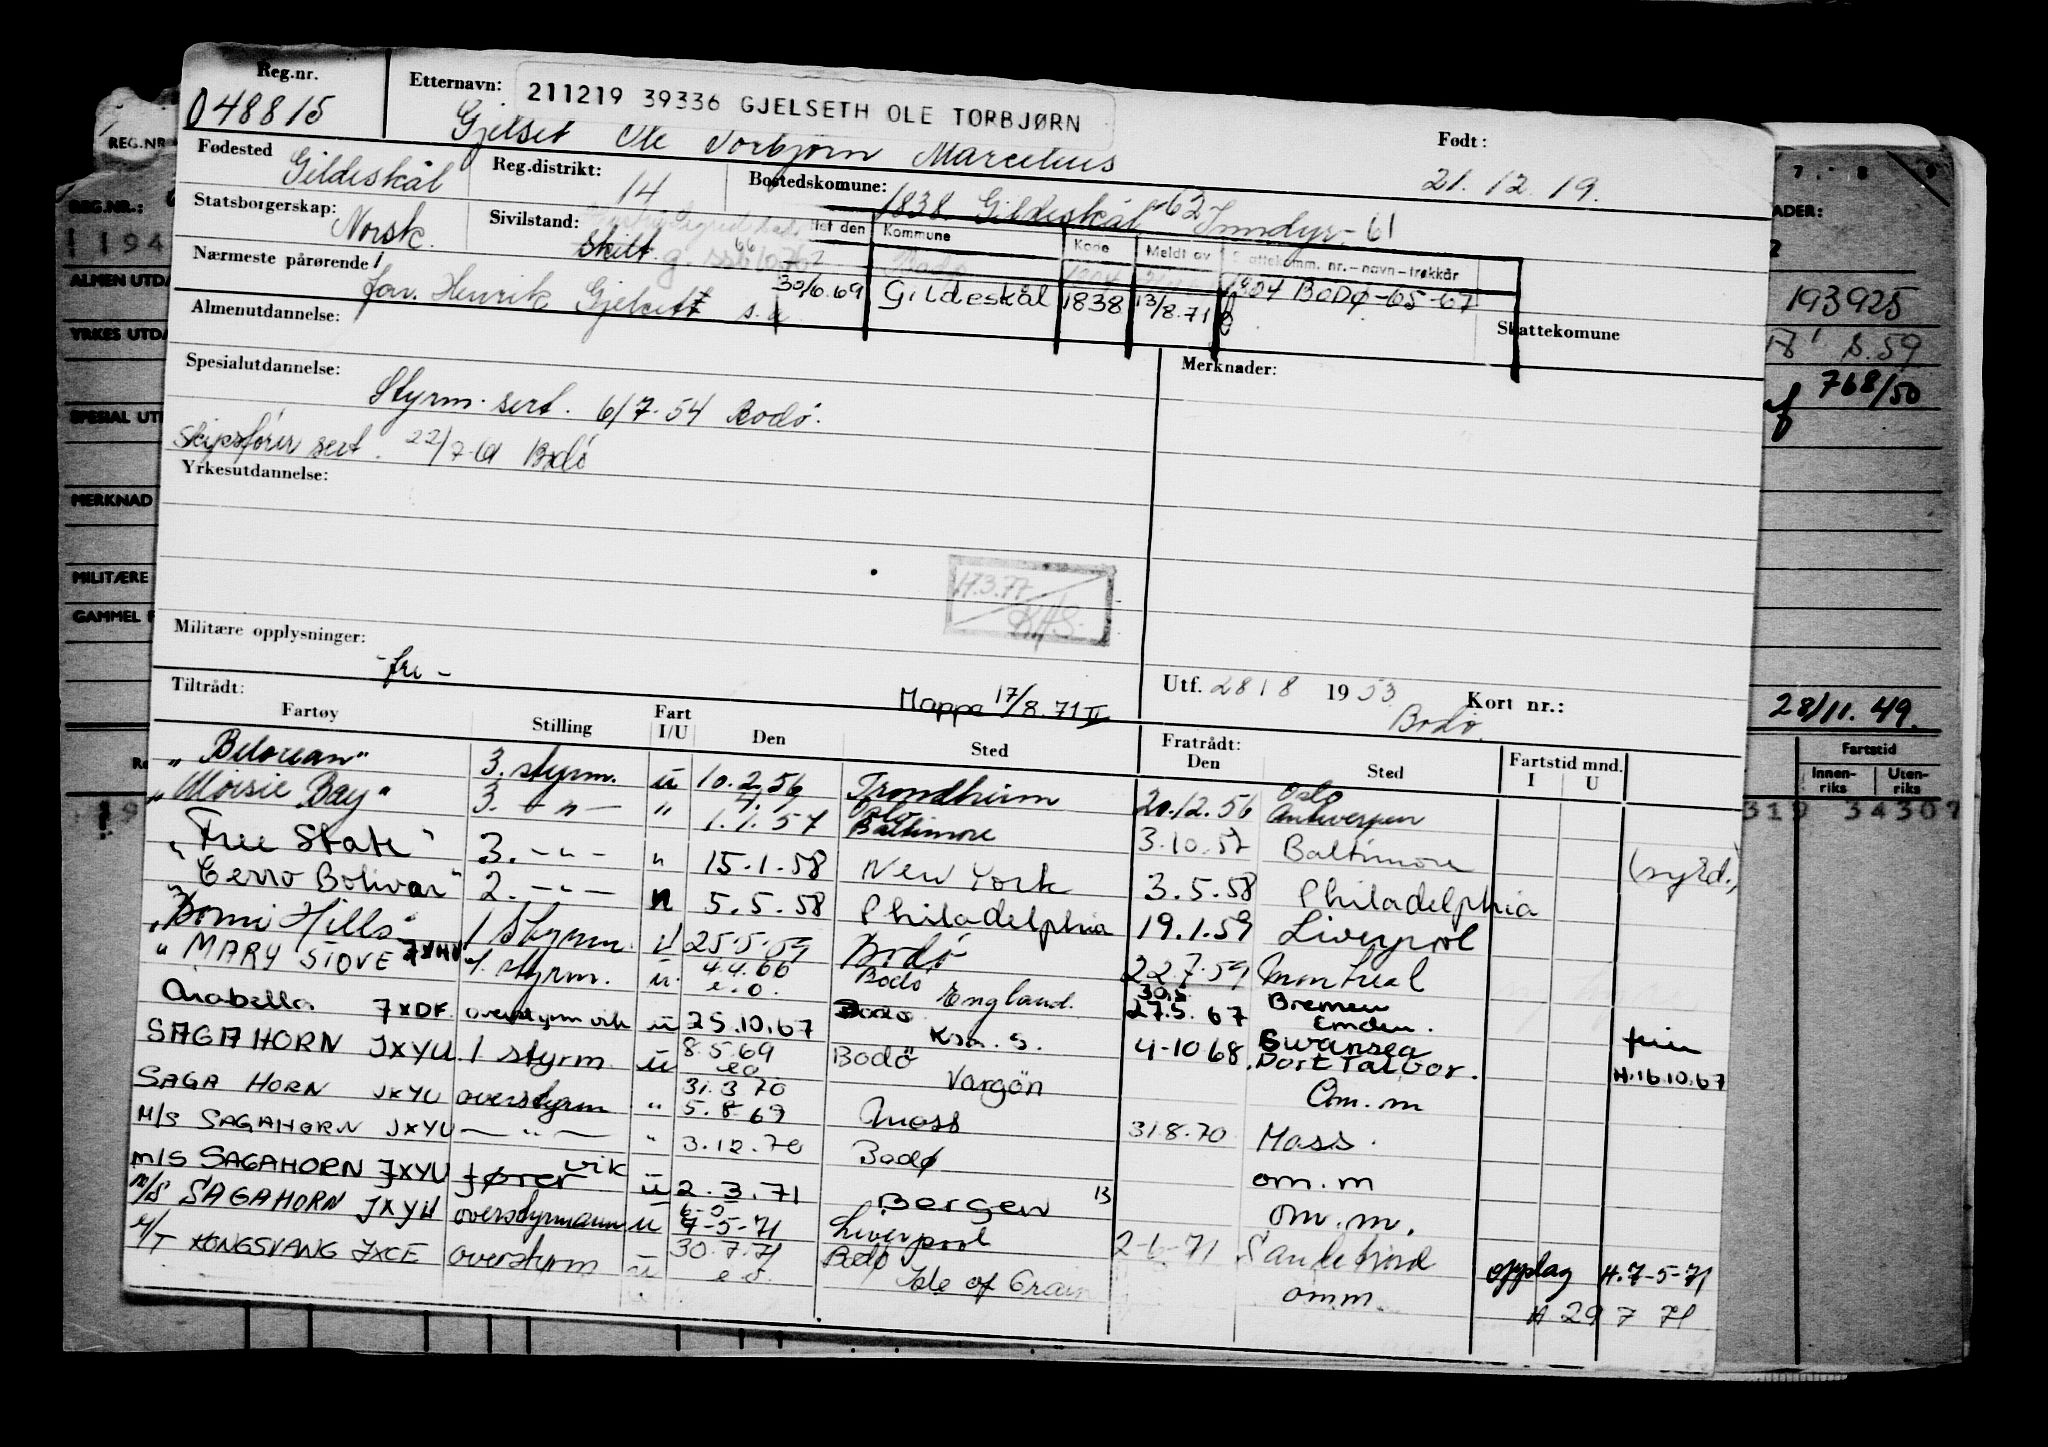 Reg.nr.
048815
Etternavn: 211219 39336 GJELSETH OLE TORBJØRN
Gjelset Ole Torbjørn Marcelius
Født:
21.12.19.
Fødested
Gildeskål
Reg.distrikt:
14
Bostedskomune:
1838 Gildeskål -62 Inndyr- 61
Statsborgerskap:
Norsk.
Sivilstand:
Skilt
Kommune Kode Meldt av Skattekomm. nr.–navn–trekkår
1904 BODØ-65-67
Nærmeste pårørende
far. Henrik
30/6.69 Gildeskål 1838 13/8.71
Skattekomune
Almenutdannelse:
Spesialutdannelse:
Merknader:
Styrm. sert. 6/7-54 Bodø.
Skipsfører sert. 22/7-61 Bodø
Yrkesutdannelse:
17.3.77
Militære opplysninger:
- fri -
Mappe 17/8.71 II
Utf. 28/8 1953
Bodø.
Kort nr.:
Tiltrådt:
Fartøy Stilling Fart I/U Den Sted Fratrådt: Den Sted Fartstid mnd. I U
3. styrm. u 10.2.56 Trondheim 20.12.56 Oslo Antwerpen
"Moisie Bay" 3. -"- " 1.1.57 Baltimore 3.10.57 Baltimore
"Free State" 3. -"- " 15.1.58 New York 3.5.58 Philadelphia
"Cerro Bolivar" 2. -"- " 5.5.58 Philadelphia 19.1.59 Liverpool
"Bomi Hills" 1 styrm. u 25.5.59 Bodø 22.7.59 Montreal
"MARY STOVE 1. styrm. u. 4.4.66 e.o. Bodø England. 27.5.67 Bremen Emden.
Arabella JXDF. overstyrm vik u 25.10.67 Bodø 4-10 68. Swansea Port Talbot. H.16.10.67
SAGAHORN JXYU 1 styrm. u 8.5.69 eo Bodø Vargön Om. m
SAGA HORN JXYU overstyrm " 31.3.70 5.8.69 Moss 31.8.70 Moss.
M/S SAGAHORN JXYU — " — " 3.12.70 Bodø om.m
M/S SAGAHORN JXYU fører vik u 2.3.71 Bergen 13 om.m.
M/S SAGAHORN JXYU overstyrmann u 7-5-71 Liverpool 2-6-71 Sandefjord opplag H.7-5-71
M/T KONGSVANG JXCE overstyrm u 30.7.71 e o. Bodø Isle of Grain omm. H 29 7 71
REG.NR
REG.NR.:
ALMEN UTDA
YRKES UTDA
SPESIAL UT
MERKNAD
MILITÆRE
GAMMEL F
7 8 9
ADER:
193925
768/50
28/11.49.
Fartstid
Innen-riks Uten-riks
319 34307